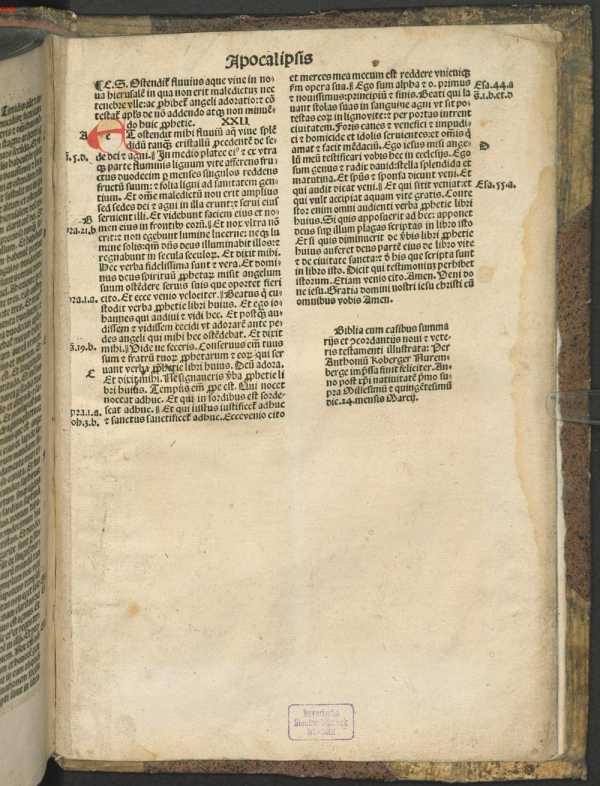 Apocalipsis
¶C.S. Ostendit̃ fluvius aque vive in no-
va hierusalẽ in qua non erit maledictuȝ nec
tenebre vlle: ac ꝓhibet̃ angeli adoratio: et cõ
testat̃ apl̃s de nõ addendo atqȝ non minuẽ-
do huic ꝓphetie. XXII
A
ET ostendit mihi fluviũ aq̃ vive splẽ
didũ tanqȝ cristallũ ꝓcedentẽ de se-
ȝ.5.d.
de dei ⁊ agni. ‖ In medio platee eiꝰ ⁊ ex vtra
qȝ parte fluminis lignum vite afferens fru-
ctus duodecim ꝑ menses singulos reddens
fructũ suũm: ⁊ folia ligni ad sanitatem gen-
tium. Et om̃e maledictũ non erit amplius
sed sedes dei ⁊ agni in illa erunt: ⁊ servi eius
B
servient illi. Et videbunt faciem eius et no-
ra.21.b
men eius in frontibꝰ eoꝝ. ‖ Et nox vltra nõ
erit: ⁊ non egebunt lumine lucerne: neqȝ lu
mine solis: qm̃ dñs deus illuminabit illos: ⁊
regnabunt in secula seculoꝝ. Et dixit mihi.
Hec verba fidelissima sunt ⁊ vera. Et domi-
nus deus spirituũ ꝓphetaꝝ misit angelum
suum ostẽdere servis suis que oportet fieri
pra.1.a.
cito. Et ecce venio velociter. ‖ Beatus q̃ cu-
stodit verba ꝓphetie libri huius. Et ego io-
hannes qui audivi ⁊ vidi hec. Et postqȝ au-
dissem ⁊ vidissem cecidi vt adorarẽ ante pe-
des angeli qui mihi hec ostẽdebat. Et dixit
ȝ.19.b.
mihi. ‖ Vide ne feceris. Conservus em̃ tuus
sum ⁊ fratrũ tuoꝝ ꝓphetarum ⁊ eoꝝ qui ser
vant verba ꝓphetie libri huius. Deũ adora.
C
Et dixit mihi. Ne signaveris ꝟba ꝓphetie li
bri huius. Tempus em̃ ꝓpe est. Qui nocet
noceat adhuc. Et qui in sordibus est sorde-
pra.1.a.
scat adhuc. ‖ Et qui iustus iustificet̃ adhuc
oh.3.b.
⁊ sanctus sanctificet̃ adhuc. Ecce venio cito
et merces mea mecum est reddere vnicuiqȝ
Esa.44.a
ꝑm opera sua. ‖ Ego sum alpha ⁊ o. primus
ȝ.1.b.et.d
⁊ novissimus: principiũ ⁊ finis. Beati qui la
vant stolas suas in sanguine agni vt sit po-
testas eoꝝ in ligno vite: ⁊ per portas intrent
civitatem. Foris canes ⁊ venefici ⁊ impudi-
ci ⁊ homicide et idolis servientes: et om̃is q̃
D
amat ⁊ facit mẽdaciũ. Ego iesus misi ange-
lũ meũ testificari vobis hec in ecclesijs. Ego
sum genus ⁊ radix david stella splendida et
matutina. Et spũs ⁊ sponsa dicunt veni. Et
Esa.55.a.
qui audit dicat veni. ‖ Et qui sitit veniat: et
qui vult accipiat aquam vite gratis. Conte
stor enim omni audienti verba ꝓphetie libri
huius. Si quis apposuerit ad hec: apponet
deus suꝑ illum plagas scriptas in libro isto
Et si quis diminuerit de ꝟbis libri ꝓphetie
huius auferet deus partẽ eius de libro vite
⁊ de civitate sancta: ⁊ d̃ his que scripta sunt
in libro isto. Dicit qui testimoniũ perhibet
istorum. Etiam venio cito. Amen. Veni do
ne iesu. Gratia domini nostri iesu christi cũ
omnibus vobis Amen.
Biblia cum casibus summa
rijs et ꝯcordantijs noui ⁊ vete-
ris testamenti illustrata: Per
Anthoniũ Koberger Nurem-
berge imp̃ssa finit feliciter. An-
no post xp̃i nativitatẽ p̃mo su-
pra Millesimũ ⁊ quingẽtesimũ
die.24.mensis Marcij.